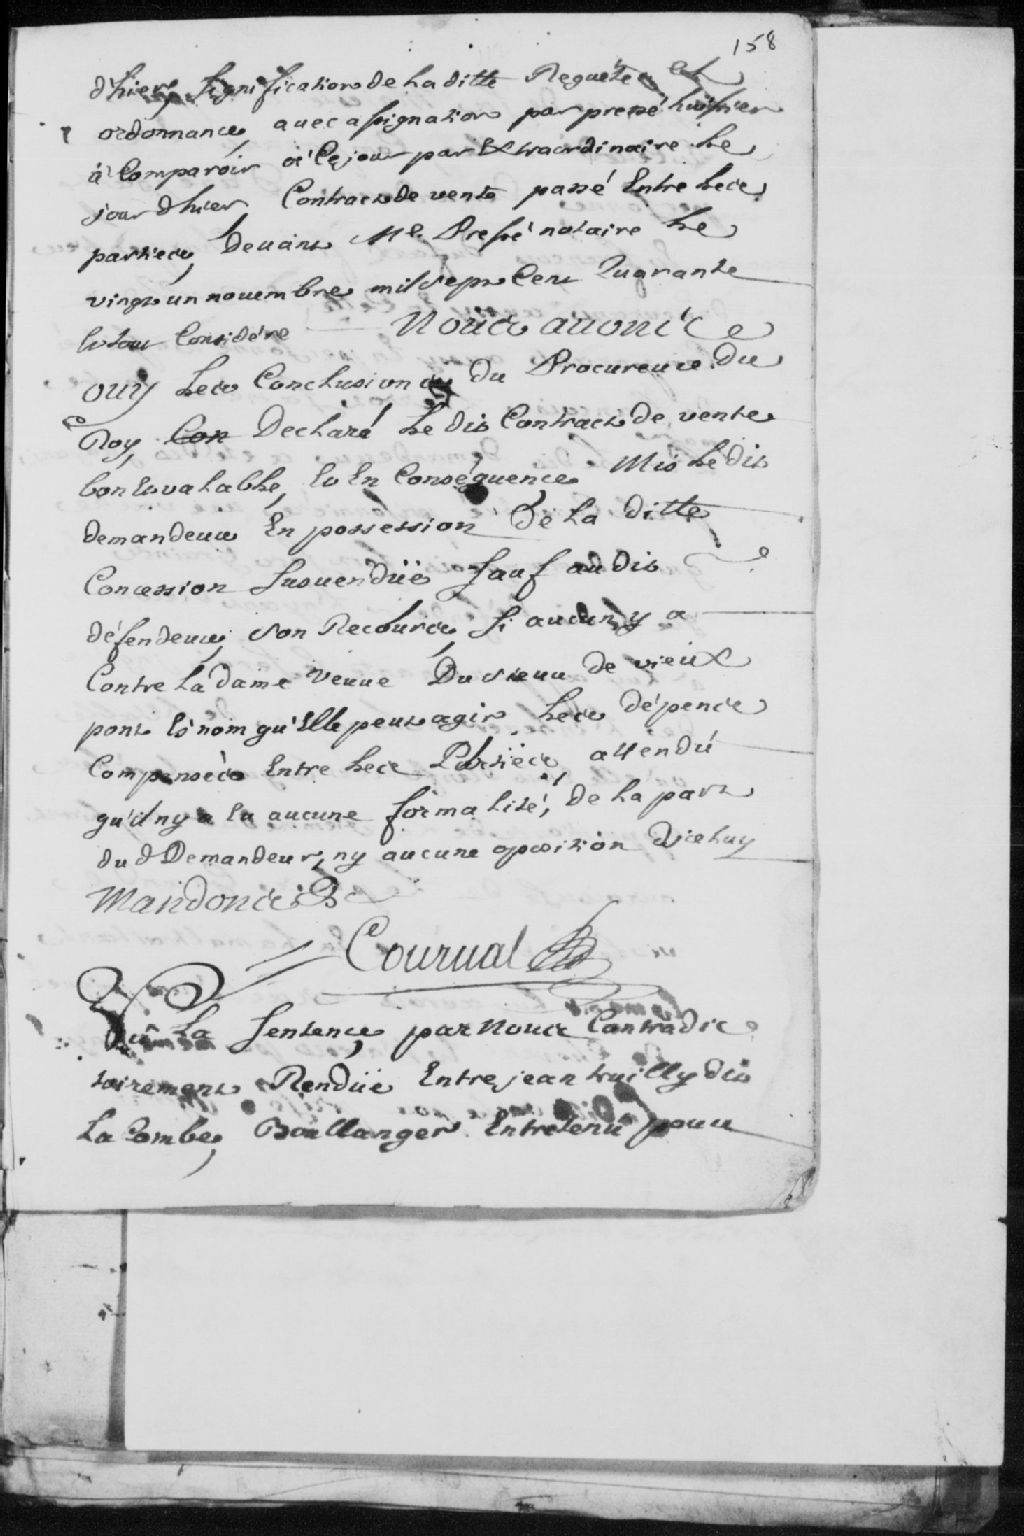 158
d'hier, signification de La ditte Requête et
ordonnance, avec assignation par pressé huissier
à Comparoir à Ce jour par Extraordinaire Le
jour d'hier, Contract de vente passé Entre Les
parties, Devant Me. Pressé notaire Le
vingt un novembre mil sept Cent quarante
le tout Considéré Nous avons
ouy Les Conclusions du Procureur du
Roy, Con Declaré Le dit Contract de vente
bon et valable, et En Conséquence Mis Le dit
demandeur En possession De La ditte
Concession susvendüe sauf au dit
défendeur, son Recours, si aucun y a
Contre La dame Veuve Du sieur de vieux
pont És nom qu'Elle peut agir Les dépens
Compensés Entre Les Parties, attendu
qu'il ny a Eu aucune formalité, de La part
du d Demandeur, ny aucune oposition D'iceluy
Mandons &c
Courval
Vû La Sentence, par Nous Contradic
toirement Rendüe Entre jean truilly dit
La Combe, Boullanger Entretenu pour